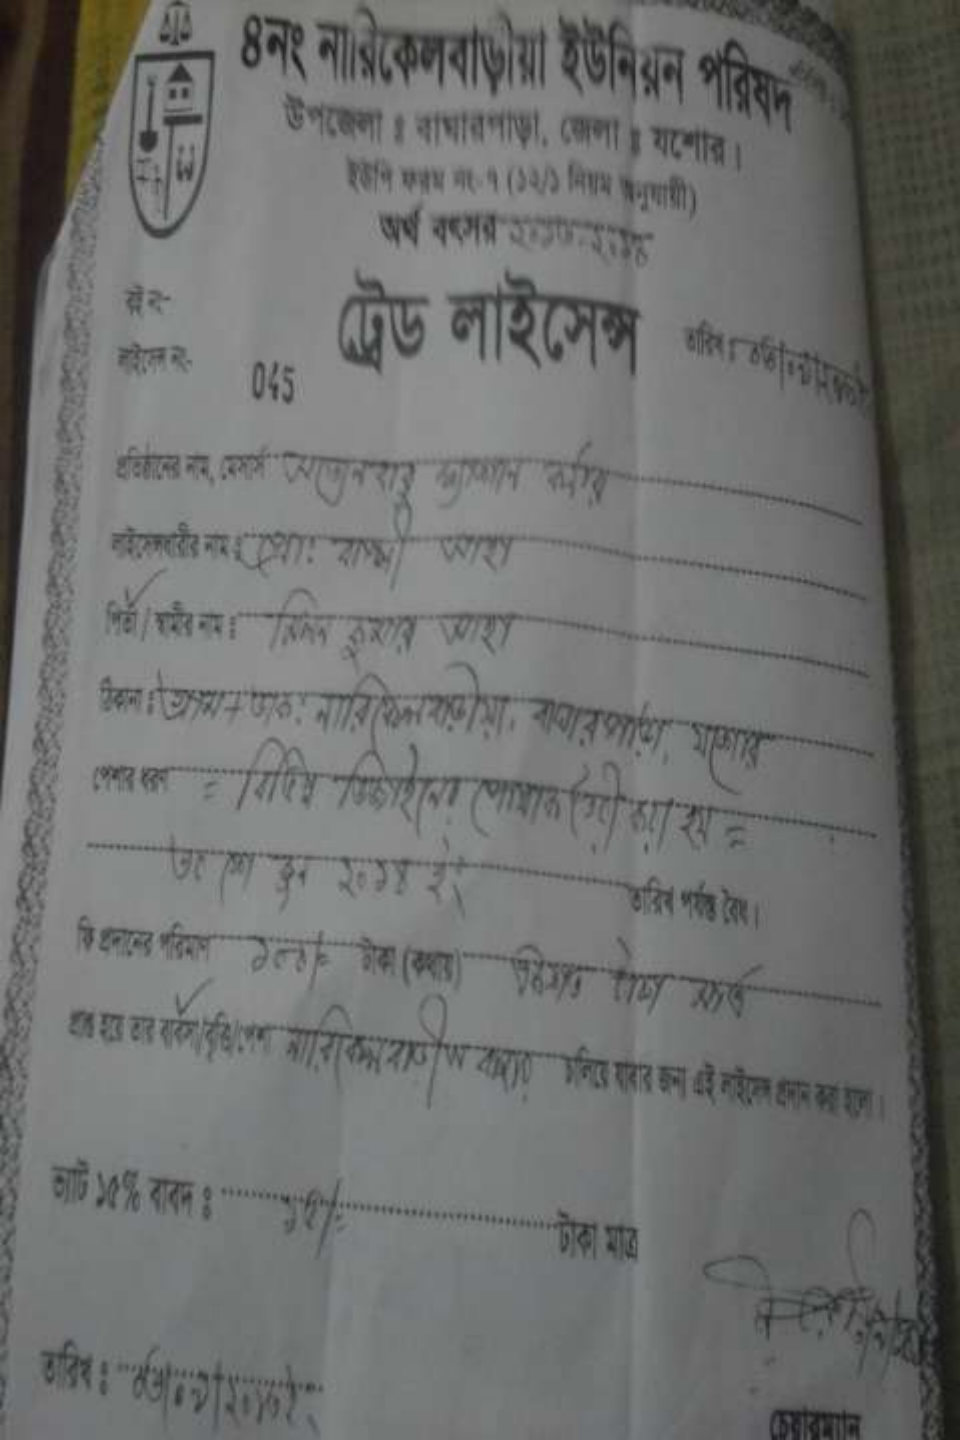 ৪নং নারিকেলবাড়ীয়া ইউনিয়ন পরিষদ
উপজেলা ঃ বাঘারপাড়া, জেলা ঃ যশোর।
ইউপি ফরম নং-৭ (১২/১ নিয়ম অনুযায়ী)
অর্থ বৎসর ২০১৩-২০১৪
বই নং-
ট্রেড লাইসেন্স
তারিখ ঃ
লাইসেন্স নং-
045
প্রতিষ্ঠানের নাম, মেসার্স
লাইসেন্সধারীর নাম ঃ প্রোঃ সাহা
পিতা / স্বামীর নাম ঃ কুমার সাহা
ঠিকানা ঃ গ্রাম + ডাক: নারিকেলবাড়ীয়া, বাঘারপাড়া, যশোর
পেশার ধরণ = বিভিন্ন ডিজাইনের পোষাক তৈরী করা হয় =
৩০ শে জুন ২০১৪ ইং তারিখ পর্যন্ত বৈধ।
ফি প্রদানের পরিমাণ ১০০/= টাকা (কথায়) একশত টাকা মাত্র
প্রাপ্ত হয়ে তার ব্যবসা/বৃত্তি/পেশা বাজার চালিয়ে যাবার জন্য এই লাইসেন্স প্রদান করা হলো।
ভ্যাট ১৫% বাবদ ঃ ১৫/= টাকা মাত্র
তারিখ ঃ
চেয়ারম্যান